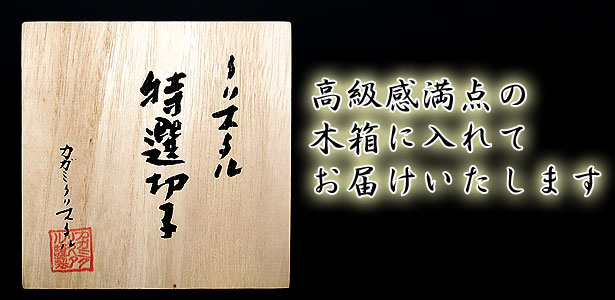 クリスタル
特選切子
カガミクリスタル
高級感満点の
木箱に入れて
お届けいたします